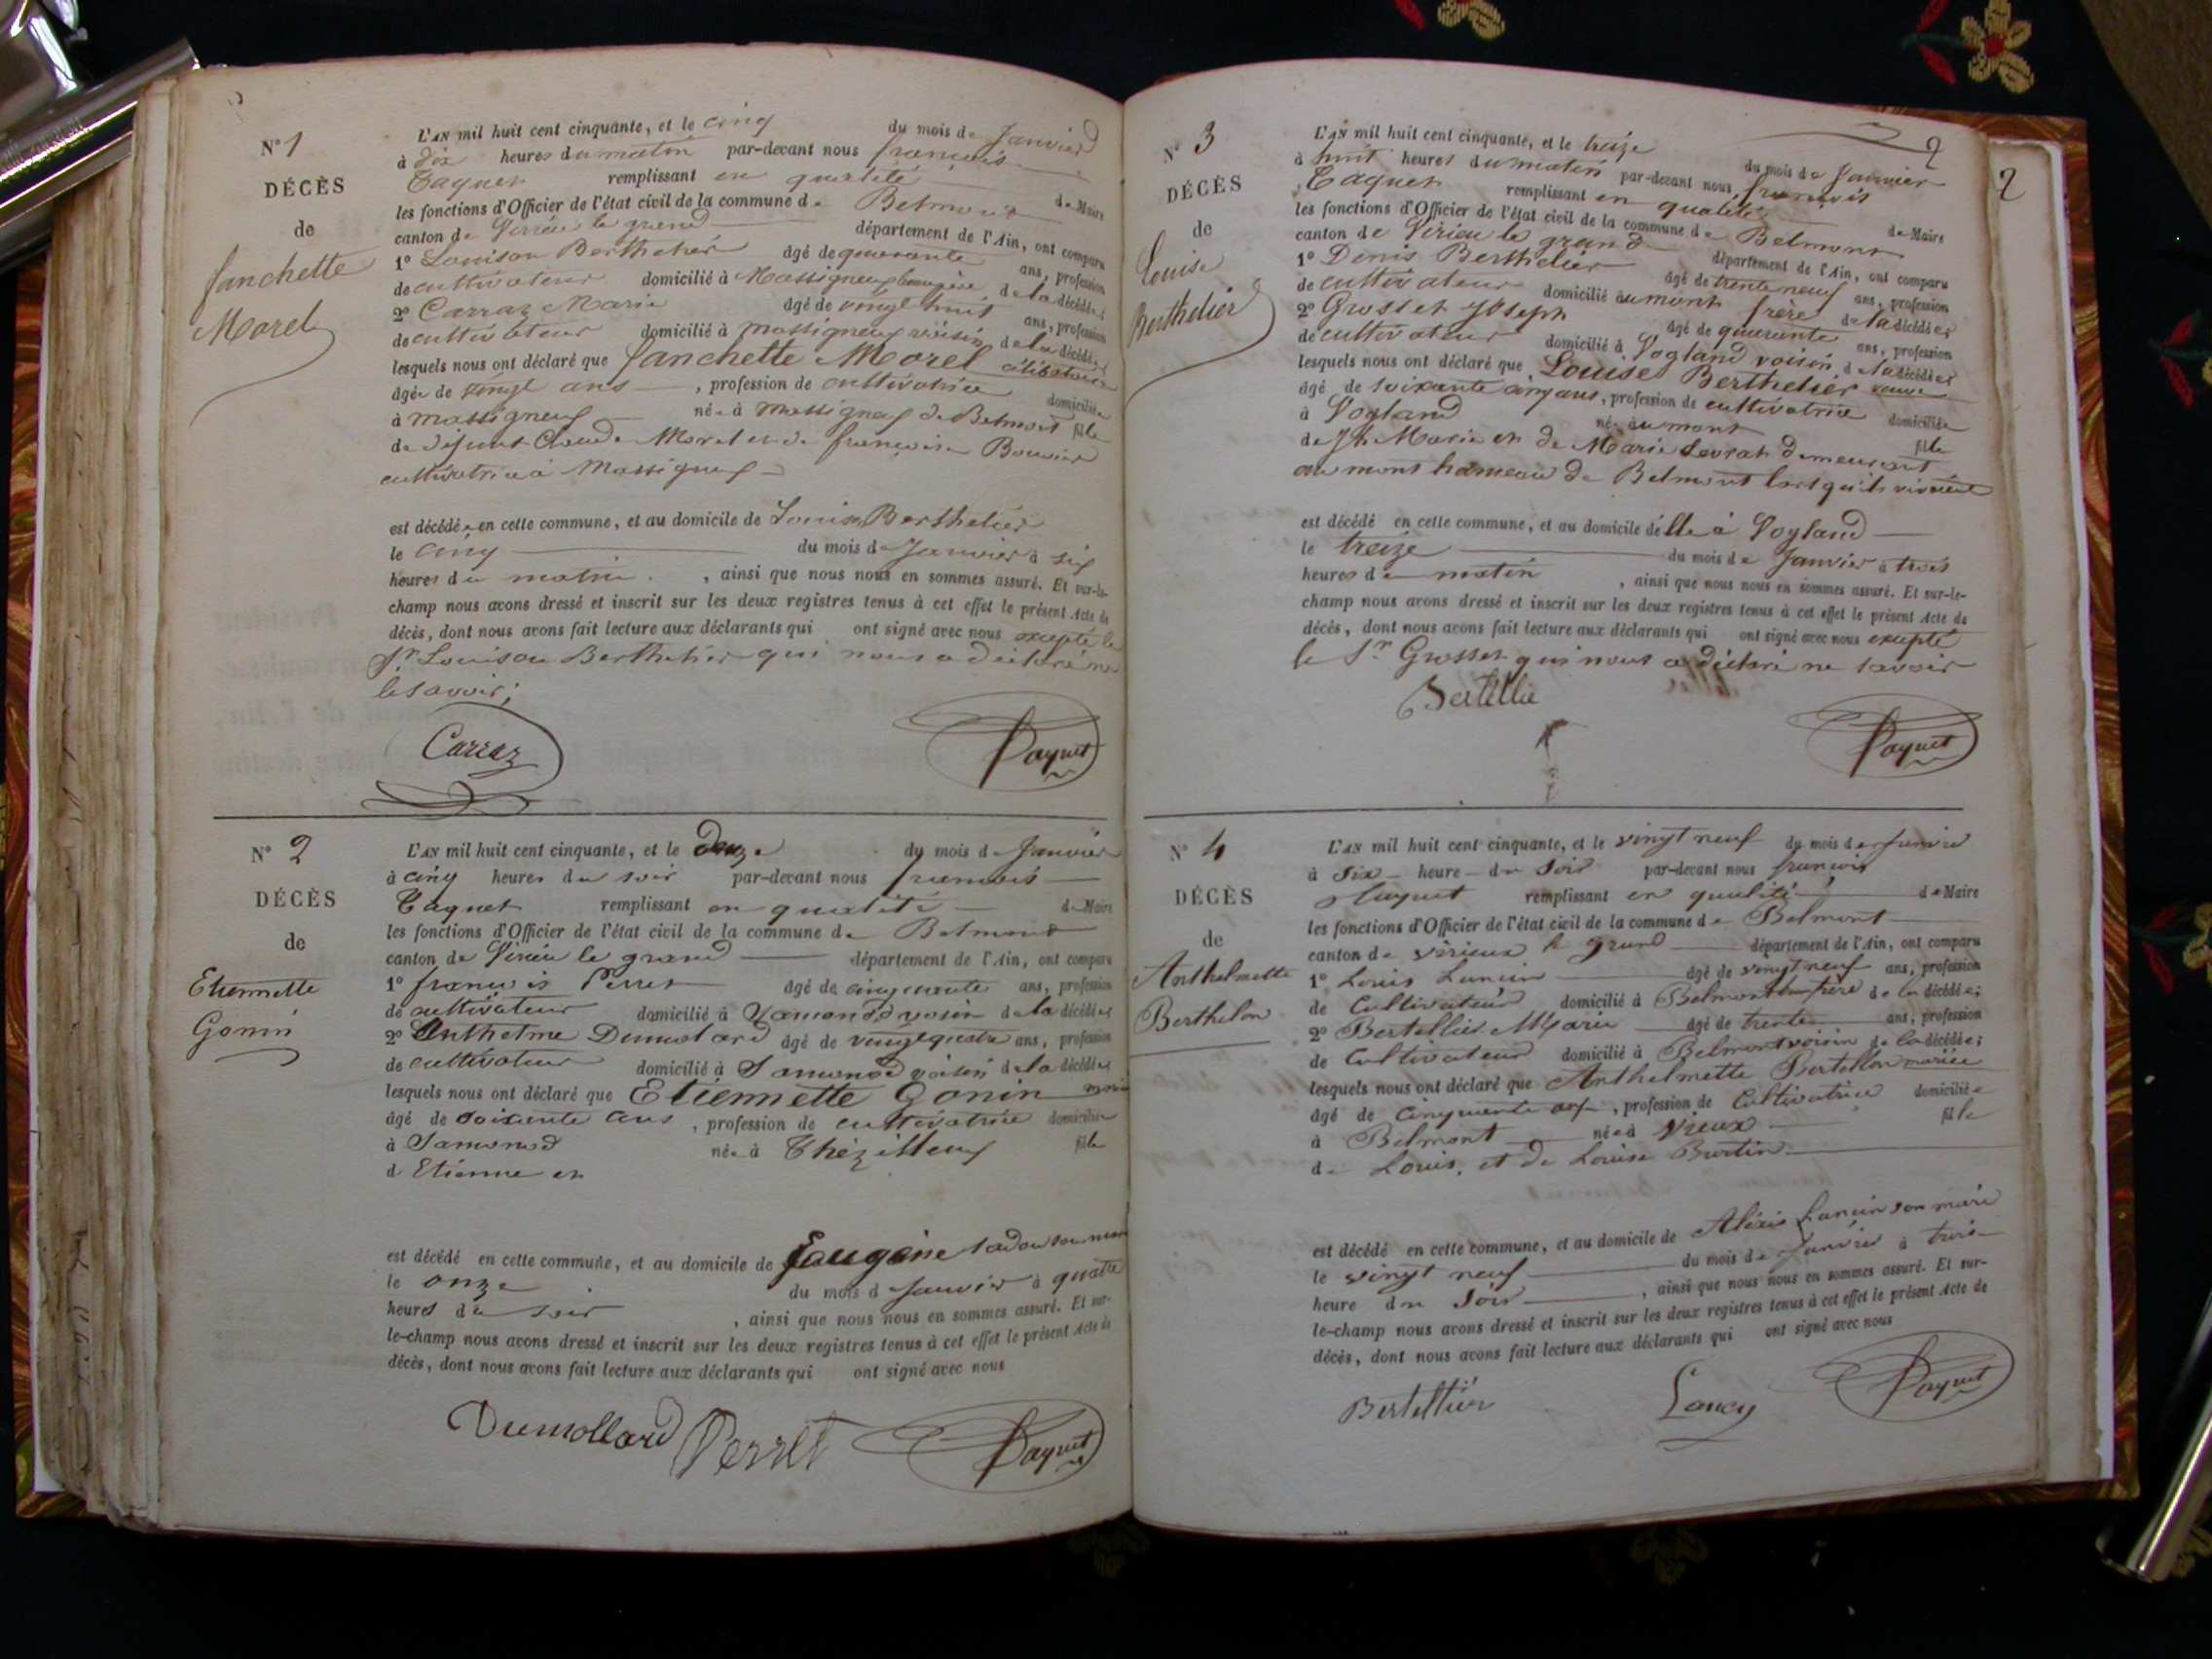 N° 1
DÉCÈS
de
fanchette
Morel
L'AN mil huit cent cinquante, et le cinq du mois de Janvier
à dix heures du matin par-devant nous françois
Paquet remplissant en qualité de Maire
les fonctions d'Officier de l'état civil de la commune de Belmont
canton de Virieu le grand département de l'Ain, ont comparu
1° Louison Berthelier âgé de quarante ans, profession
de cultivateur domicilié à Massigneux de la décédée;
2° Carraz Marie âgé de vingt huit ans, profession
de cultivateur domicilié à Massigneux voisin de la décédée;
lesquels nous ont déclaré que fanchette Morel célibataire
âgée de vingt ans, profession de cultivatrice domiciliée
à Massigneux née à Massigneux de Belmont fille
de défunt Claude Morel et de françoise Bouvier
cultivatrice à Massigneux
est décédée en cette commune, et au domicile de Louison Berthelier
le cinq du mois de Janvier à six
heures du matin, ainsi que nous nous en sommes assuré. Et sur-le-
champ nous avons dressé et inscrit sur les deux registres tenus à cet effet le présent Acte de
décès, dont nous avons fait lecture aux déclarants qui ont signé avec nous excepté le
Sr Louison Berthelier qui nous a déclaré ne
le savoir;
Carraz Paquet
N° 2
DÉCÈS
de
Etiennette
Gonin
L'AN mil huit cent cinquante, et le douze du mois de Janvier
à cinq heures du soir par-devant nous francois
Paquet remplissant en qualité de Maire
les fonctions d'Officier de l'état civil de la commune de Belmont
canton de Virieu le grand département de l'Ain, ont comparu
1° francois Perret âgé de cinquante ans, profession
de cultivateur domicilié à Samonod voisin de la décédée;
2° Anthelme Dumolard âgé de vingt quatre ans, profession
de cultivateur domicilié à Samonod voisin de la décédée
lesquels nous ont déclaré que Etiennette Gonin
âgé de soixante ans, profession de cultivatrice domiciliée
à Samonod née à Thézillieux fille
d Etienne et
est décédé en cette commune, et au domicile de Eugène son mari
le onze du mois d Janvier à quatre
heures du soir, ainsi que nous nous en sommes assuré. Et sur-
le-champ nous avons dressé et inscrit sur les deux registres tenus à cet effet le présent Acte de
décès, dont nous avons fait lecture aux déclarants qui ont signé avec nous
Dumollard Perret Paquet
2
2
N° 3
DÉCÈS
de
Louise
Berthelier
L'AN mil huit cent cinquante, et le treize du mois de Janvier
à huit heures du matin par-devant nous françois
Paquet remplissant en qualité de Maire
les fonctions d'Officier de l'état civil de la commune de Belmont
canton de Virieu le grand département de l'Ain, ont comparu
1° Denis Berthelier âgé de trente neuf ans, profession
de cultivateur domicilié au mont frère de la décédée;
2° Grosset Joseph âgé de quarante ans, profession
de cultivateur domicilié à Vogland voisin de la décédée;
lesquels nous ont déclaré que Louise Berthelier veuve
âgé de soixante cinq ans, profession de cultivatrice domiciliée
à Vogland née au mont fille
de Jh Marie et de Marie Sevrat demeurant
au mont hameau de Belmont lorsqu'ils vivaient
est décédé en cette commune, et au domicile d'elle à Vogland
le treize du mois de Janvier à trois
heures du matin, ainsi que nous nous en sommes assuré. Et sur-le-
champ nous avons dressé et inscrit sur les deux registres tenus à cet effet le présent Acte de
décès, dont nous avons fait lecture aux déclarants qui ont signé avec nous excepté
le Sr Grosset qui nous a déclaré ne savoir
Bertellie Paquet
N° 4
DÉCÈS
de
Anthelmette
Berthelon
L'AN mil huit cent cinquante, et le vingt neuf du mois de janvier
à Six heure du Soir par-devant nous françois
Paquet remplissant en qualité de Maire
les fonctions d'Officier de l'état civil de la commune de Belmont
canton de virieux le grand département de l'Ain, ont comparu
1° Louis Lancin âgé de vingt neuf ans, profession
de Cultivateur domicilié à Belmont frère de la décédée;
2° Bertellier Marie âgé de trente ans, profession
de Cultivateur domicilié à Belmont voisin de la décédée;
lesquels nous ont déclaré que Anthelmette Bertellon mariée
âgé de Cinquante ans, profession de Cultivatrice domiciliée
à Belmont née à Vieux fille
de Louis, et de Louise Burtin
est décédé en cette commune, et au domicile de Aléxis Lancin son mari
le vingt neuf du mois de Janvier à trois
heure du Soir, ainsi que nous nous en sommes assuré. Et sur-
le-champ nous avons dressé et inscrit sur les deux registres tenus à cet effet le présent Acte de
décès, dont nous avons fait lecture aux déclarants qui ont signé avec nous
Bertellier Lancy Paquet